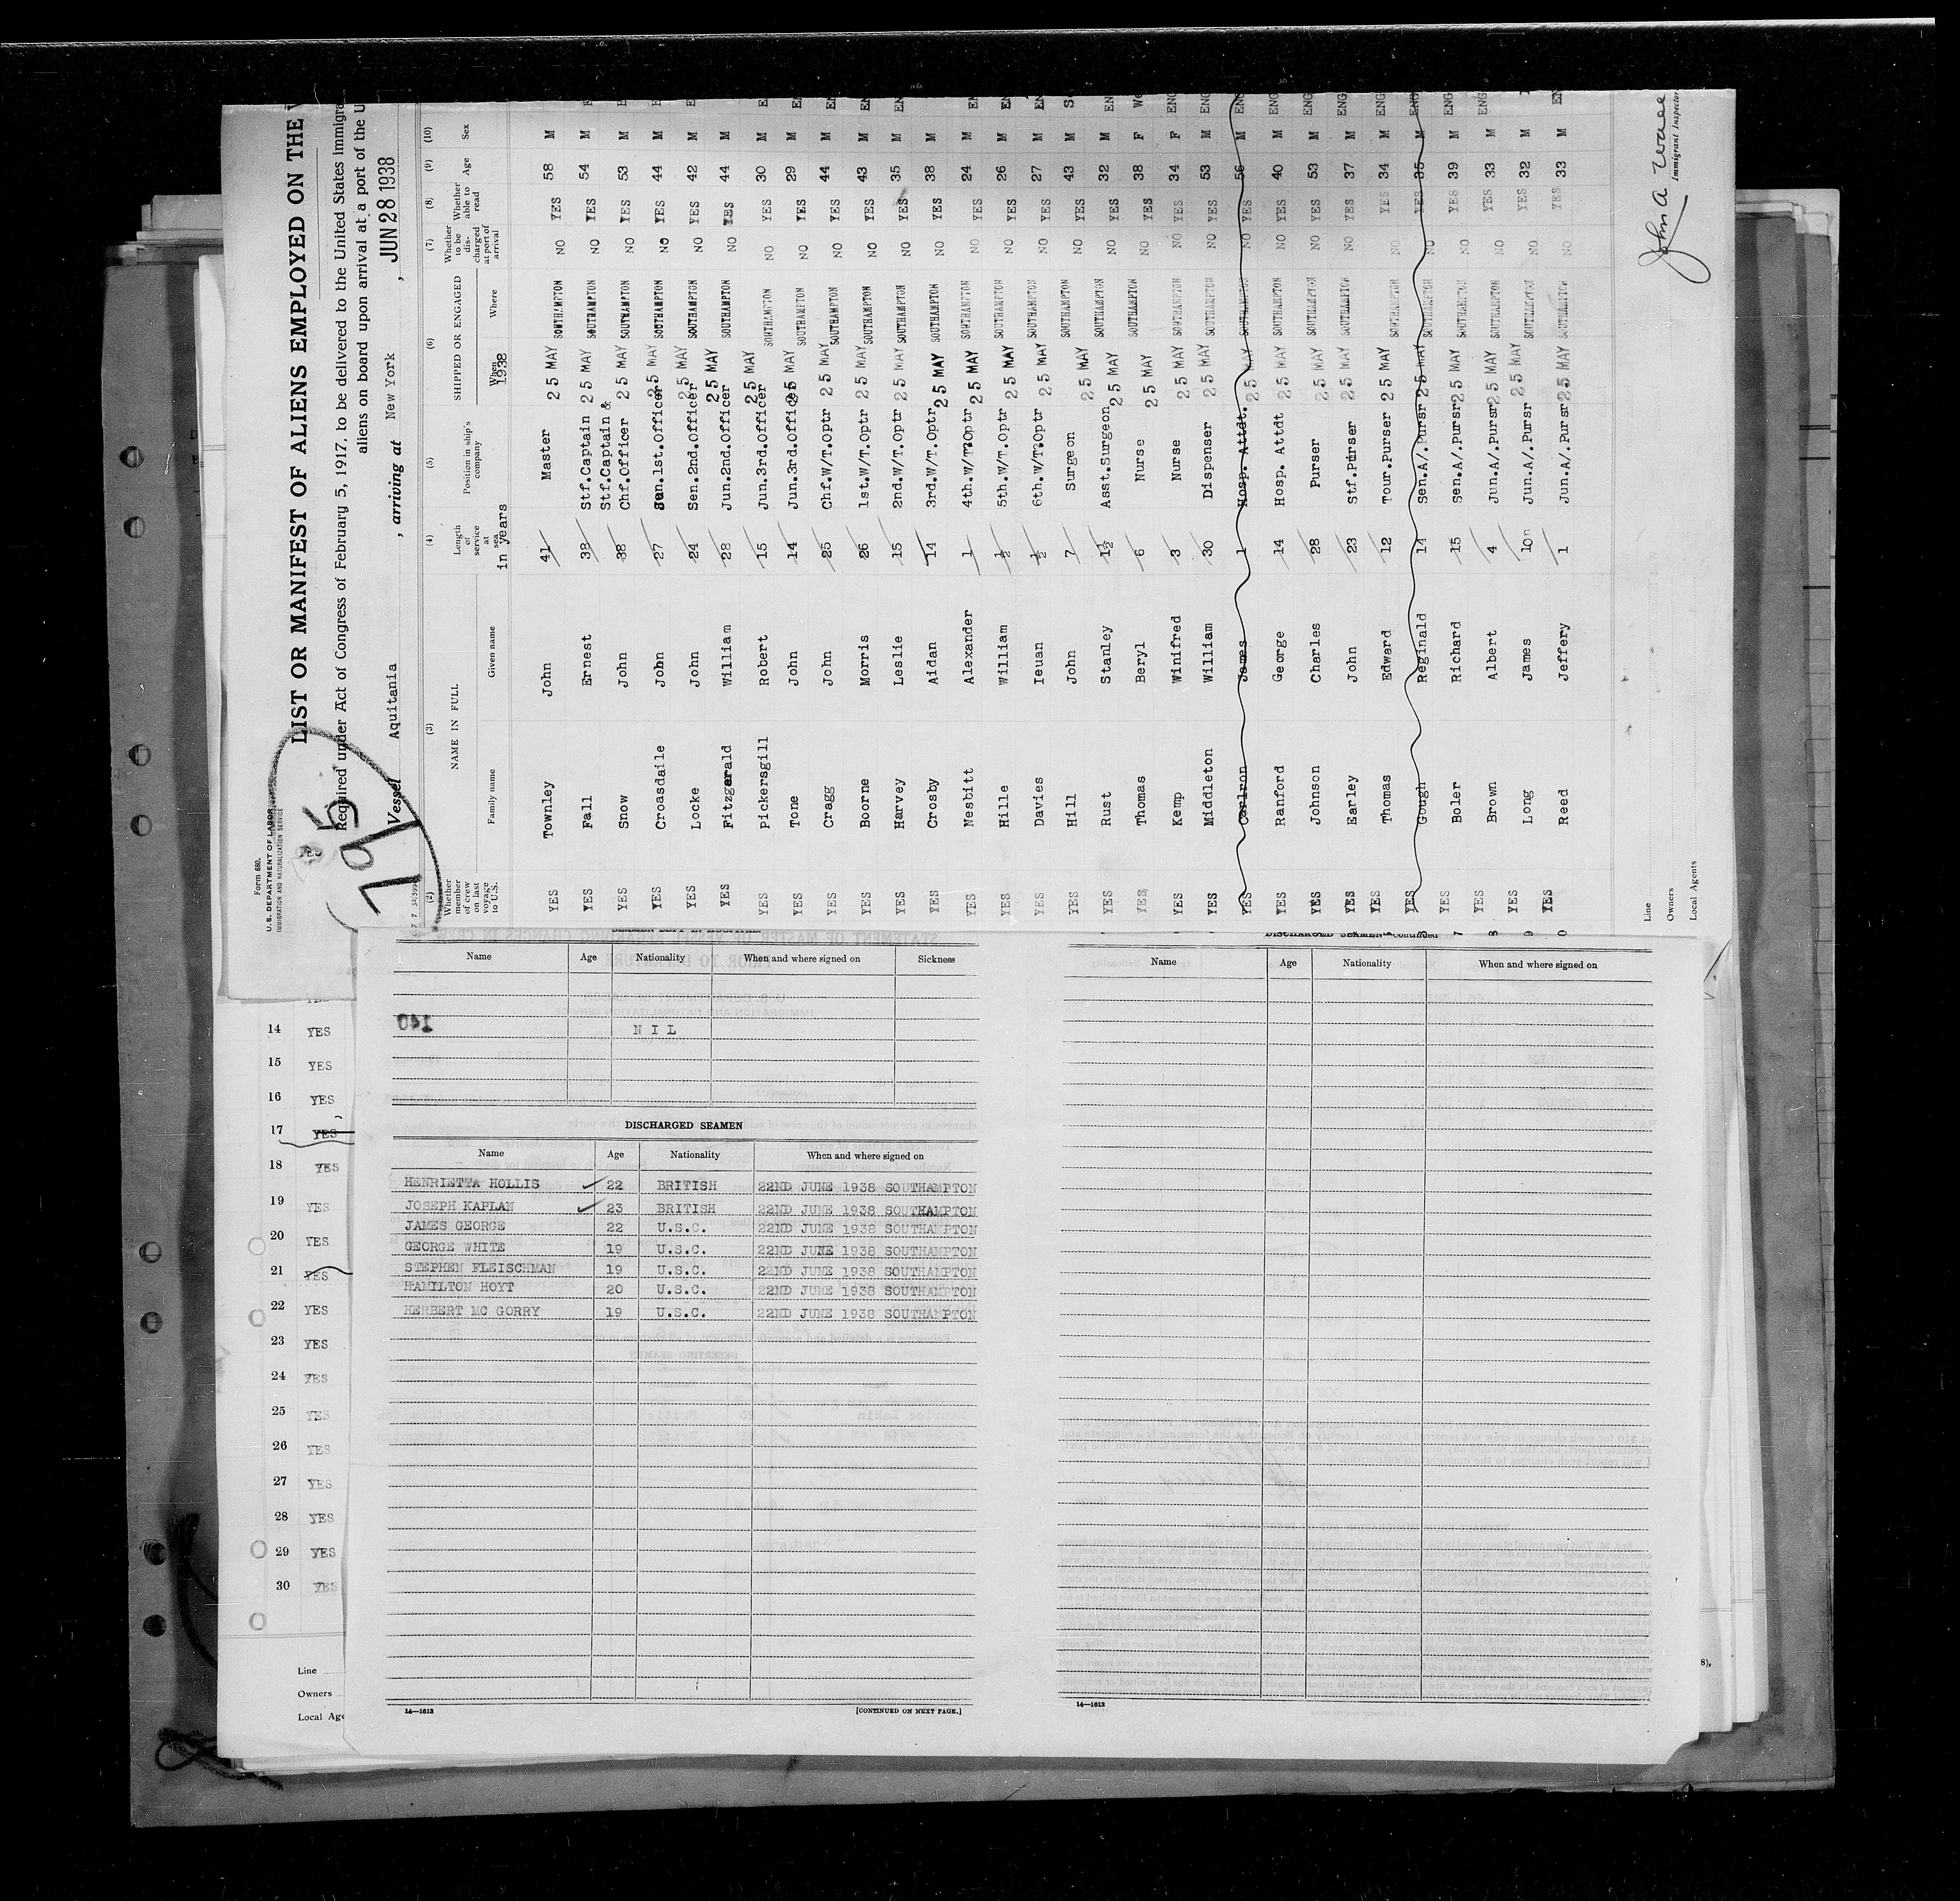 Form 680.
U. S. DEPARTMENT OF LABOR
IMMIGRATION AND NATURALIZATION SERVICE
795
LIST OR MANIFEST OF ALIENS EMPLOYED ON THE
Required under Act of Congress of February 5, 1917, to be delivered to the United States immigra
aliens on board upon arrival at a port of the U
Vessel Aquitania , arriving at New York , JUN 28 1938
(2) (3) (4) (5) (6) (7) (8) (9) (10)
Whether member of crew on last voyage to U.S. NAME IN FULL Family name Given name Length of service at sea in years Position in ship's company SHIPPED OR ENGAGED When 1938 Where Whether to be discharged at port of arrival Whether able to read Age Sex
YES Townley John 41 Master 25 MAY SOUTHAMPTON NO YES 58 M
YES Fall Ernest 38 Stf.Captain 25 MAY SOUTHAMPTON NO YES 54 M
YES Snow John 38 Stf.Captain & Chf.Officer 25 MAY SOUTHAMPTON NO YES 53 M
YES Croasdaile John 27 Sen.1st.Officer 25 MAY SOUTHAMPTON NO YES 44 M
YES Locke John 24 Sen.2nd.Officer 25 MAY SOUTHAMPTON NO YES 42 M
YES Fitzgerald William 28 Jun.2nd.Officer 25 MAY SOUTHAMPTON NO YES 44 M
YES Pickersgill Robert 15 Jun.3rd.Officer 25 MAY SOUTHAMPTON NO YES 30 M
YES Tone John 14 Jun.3rd.Officer 25 MAY SOUTHAMPTON NO YES 29 M
YES Cragg John 25 Chf.W/T.Optr 25 MAY SOUTHAMPTON NO YES 44 M EN
YES Boorne Morris 26 1st.W/T.Optr 25 MAY SOUTHAMPTON NO YES 43 M EN
YES Harvey Leslie 15 2nd.W/T.Optr 25 MAY SOUTHAMPTON NO YES 35 M EN
YES Crosby Aidan 14 3rd.W/T.Optr 25 MAY SOUTHAMPTON NO YES 38 M
YES Nesbitt Alexander 1 4th.W/T.Optr 25 MAY SOUTHAMPTON NO YES 24 M EN
YES Hille William ½ 5th.W/T.Optr 25 MAY SOUTHAMPTON NO YES 26 M EN
YES Davies Ieuan ½ 6th.W/T.Optr 25 MAY SOUTHAMPTON NO YES 27 M EN
YES Hill John 7 Surgeon 25 MAY SOUTHAMPTON NO YES 43 M
YES Rust Stanley 1½ Asst.Surgeon 25 MAY SOUTHAMPTON NO YES 32 M EN
YES Thomas Beryl 6 Nurse 25 MAY SOUTHAMPTON NO YES 38 F We
YES Kemp Winifred 3 Nurse 25 MAY SOUTHAMPTON NO YES 34 F ENG
YES Middleton William 30 Dispenser 25 MAY SOUTHAMPTON NO YES 53 M ENG
YES James 1 Hosp. Attdt. 25 MAY SOUTHAMPTON NO YES 56 M ENG
YES Ranford George 14 Hosp. Attdt 25 MAY SOUTHAMPTON NO YES 40 M ENG
YES Johnson Charles 28 Purser 25 MAY SOUTHAMPTON NO YES 53 M ENG
YES Earley John 23 Stf.Purser 25 MAY SOUTHAMPTON NO YES 37 M ENG
YES Thomas Edward 12 Tour.Purser 25 MAY SOUTHAMPTON NO YES 34 M ENG
YES Gough Reginald 14 Sen.A/.Pursr 25 MAY SOUTHAMPTON NO YES 35 M ENG
YES Boler Richard 15 Sen.A/.Pursr 25 MAY SOUTHAMPTON NO YES 39 M ENG
YES Brown Albert 4 Jun.A/.Pursr 25 MAY SOUTHAMPTON NO YES 33 M ENG
YES Long James 10 Jun.A/.Pursr 25 MAY SOUTHAMPTON NO YES 32 M
YES Reed Jeffery 1 Jun.A/.Pursr 25 MAY SOUTHAMPTON NO YES 33 M EN
Line
Owners
Local Agents
Immigrant Inspector
14 YES
15 YES
16 YES
17 YES
18 YES
19 YES
20 YES
21 YES
22 YES
23 YES
24 YES
25 YES
26 YES
27 YES
28 YES
29 YES
30 YES
Line
Owners
Local Age
Name Age Nationality When and where signed on Sickness
NIL
DISCHARGED SEAMEN
Name Age Nationality When and where signed on
HENRIETTA HOLLIS 22 BRITISH 22ND JUNE 1938 SOUTHAMPTON
JOSEPH KAPLAN 23 BRITISH 22ND JUNE 1938 SOUTHAMPTON
JAMES GEORGE 22 U.S.C. 22ND JUNE 1938 SOUTHAMPTON
GEORGE WHITE 19 U.S.C. 22ND JUNE 1938 SOUTHAMPTON
STEPHEN FLEISCHMAN 19 U.S.C. 22ND JUNE 1938 SOUTHAMPTON
HAMILTON HOYT 20 U.S.C. 22ND JUNE 1938 SOUTHAMPTON
HERBERT MC GORRY 19 U.S.C. 22ND JUNE 1938 SOUTHAMPTON
14—1613
[CONTINUED ON NEXT PAGE.]
DISCHARGED SEAMEN—Continued
Name Age Nationality When and where signed on
14—1613